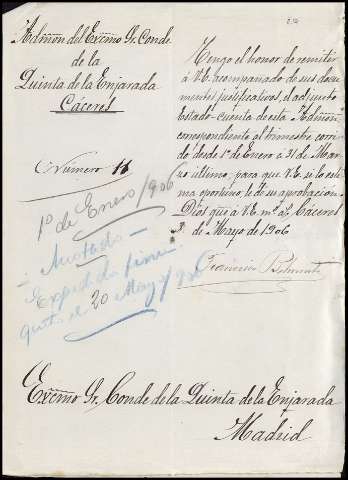 Admon del Excmo Sr. Conde
de la
Quinta de la Enjarada
Cáceres
Número 11
1º de Enero/906
Anotado
Expedido fini
quito el 20 Mayo/906
Tengo el honor de remitir
á V.E. acompañado de sus docu
mentos justificativos, el adjunto
Estado-cuenta de esta Admon,
correspondiente al trimestre corri
do desde 1º de Enero á 31 de Mar
zo último, para que V.E. si lo esti
ma oportuno, le dé su aprobación.
Dios gue á V.E. ms as Cáceres
2 de Mayo de 1906
Francisco
Excmo Sr. Conde de la Quinta de la Enjarada
Madrid